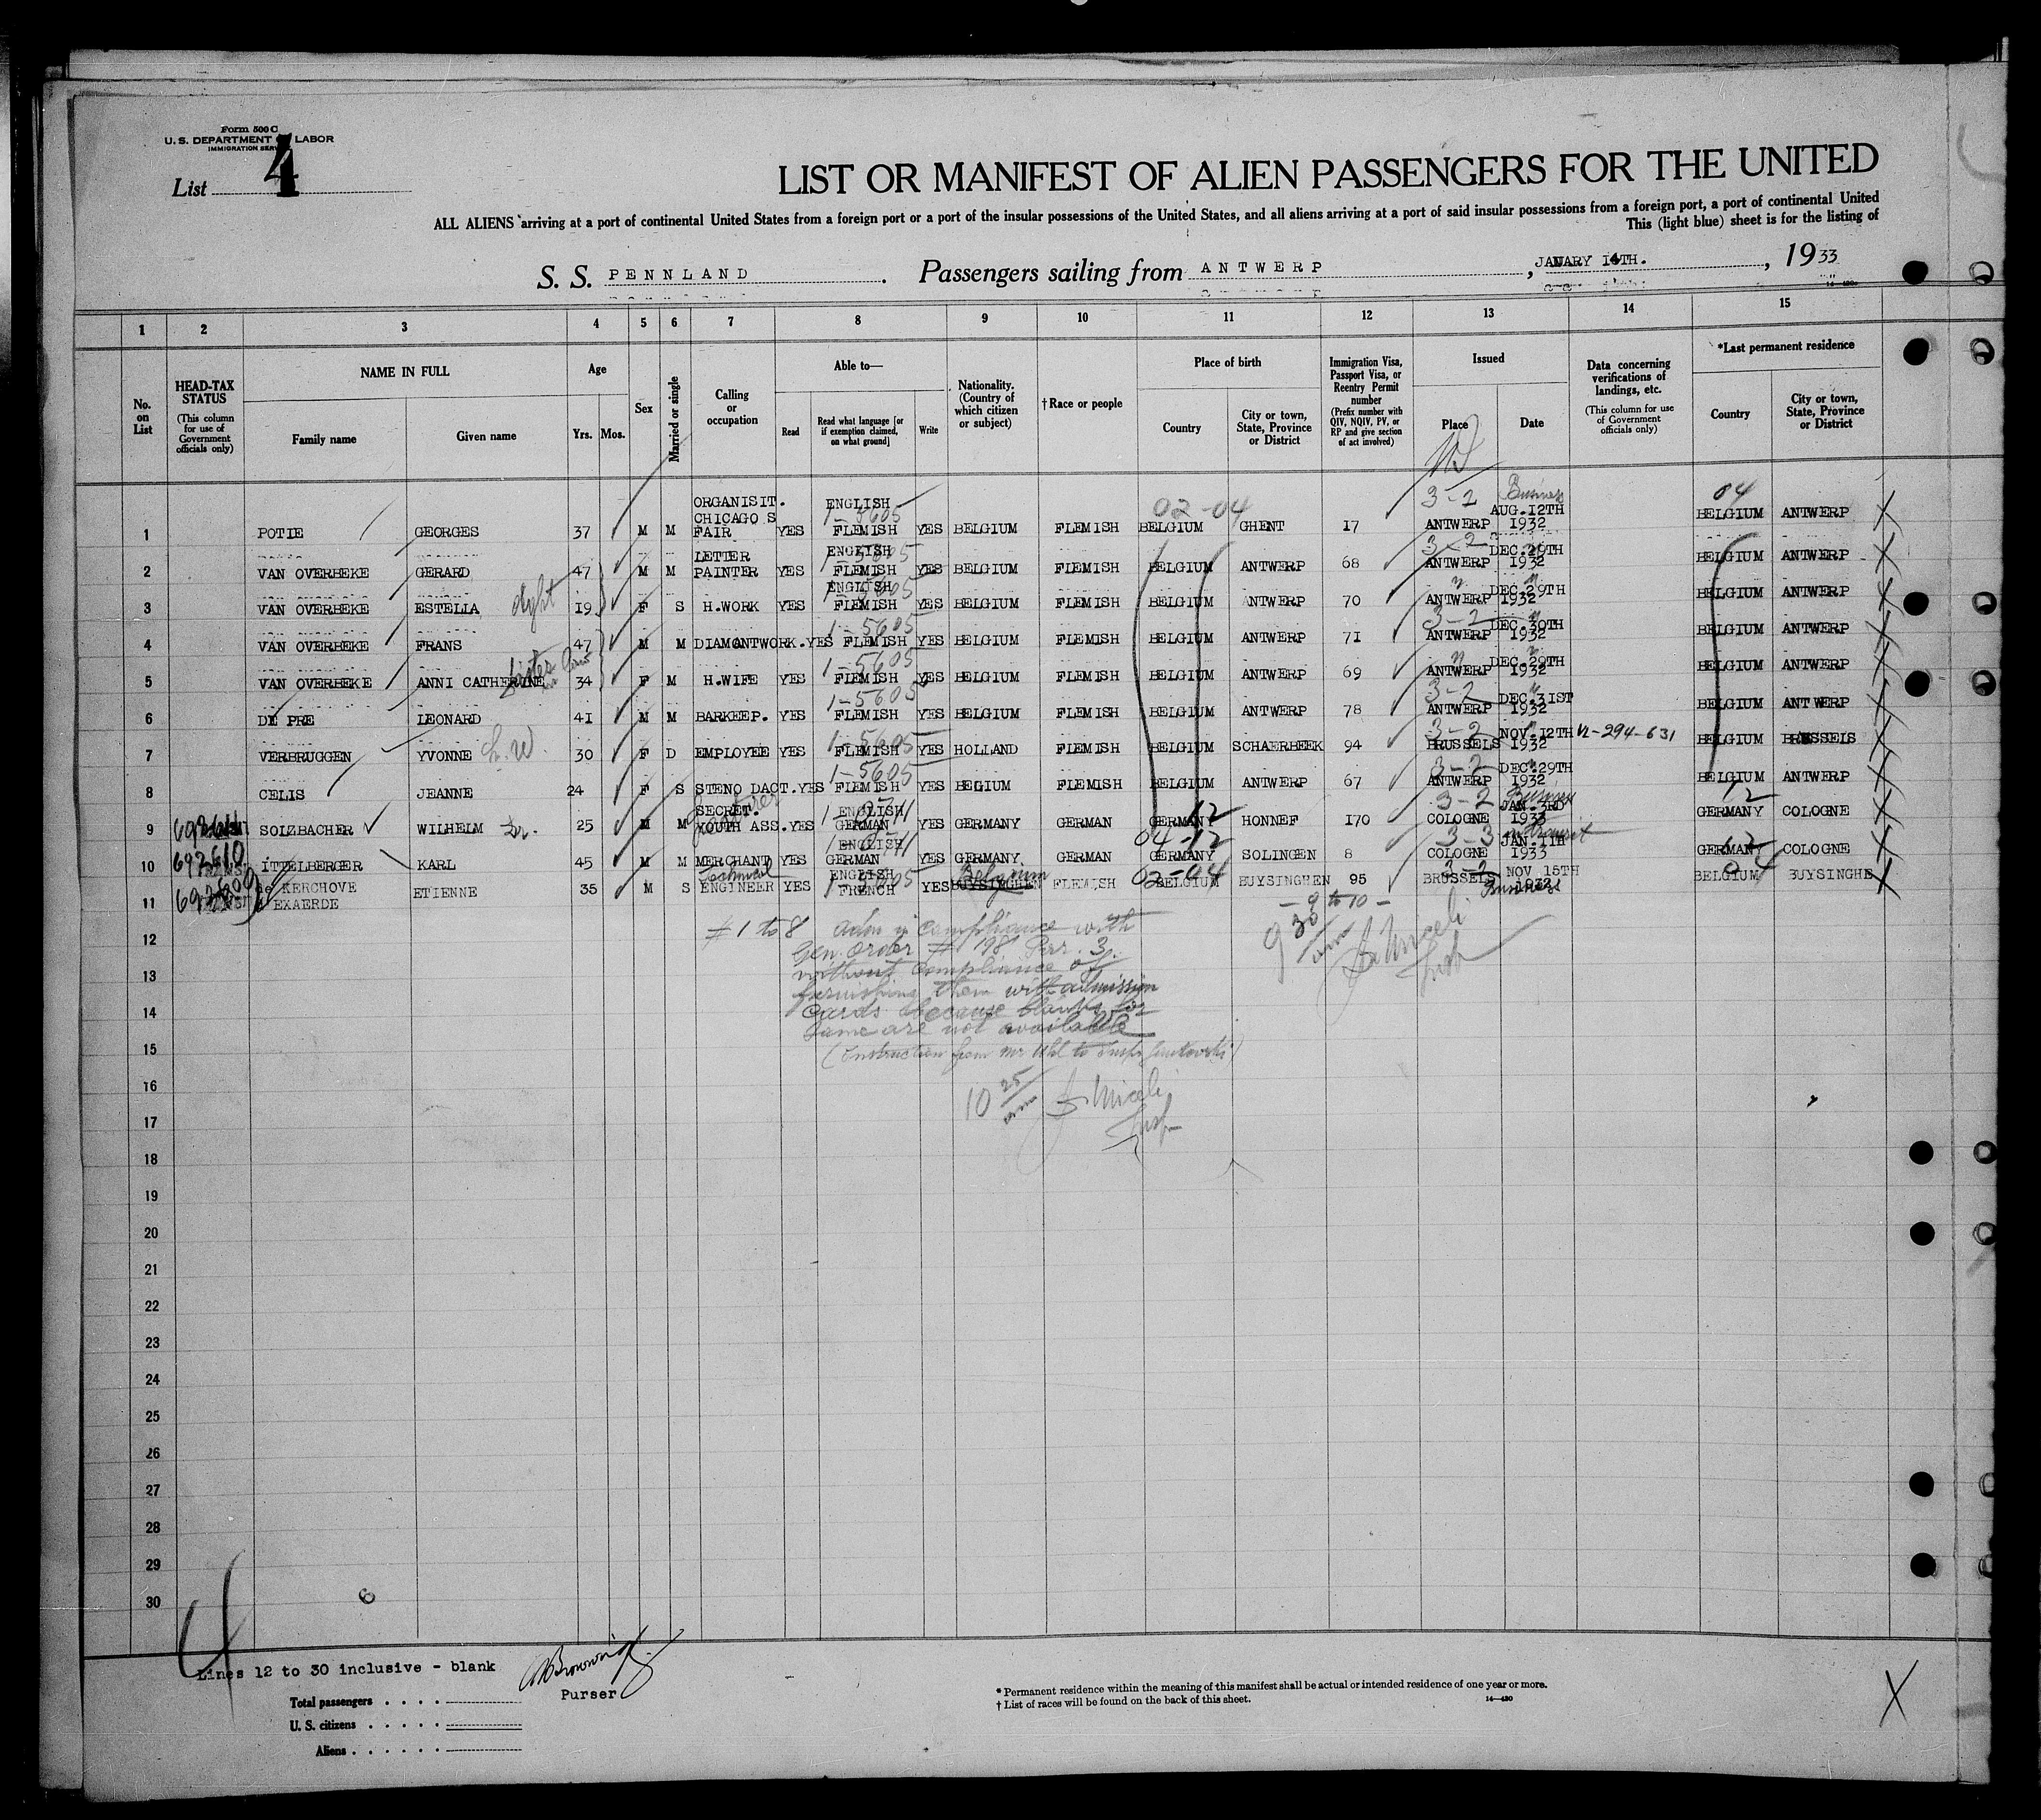 Form 500 C
U. S. DEPARTMENT OF LABOR
IMMIGRATION SERV
List 4
LIST OR MANIFEST OF ALIEN PASSENGERS FOR THE UNITED
ALL ALIENS arriving at a port of continental United States from a foreign port or a port of the insular possessions of the United States, and all aliens arriving at a port of said insular possessions from a foreign port, a port of continental United
This (light blue) sheet is for the listing of
S. S. PENNLAND. Passengers sailing from ANTWERP, JANUARY 14TH., 1933
1 2 3 4 5 6 7 8 9 10 11 12 13 14 15
No. on List
HEAD-TAX STATUS
(This column for use of Government officials only)
NAME IN FULL
Family name
Given name
Age
Yrs. Mos.
Sex
Married or single
Calling or occupation
Able to—
Read
Read what language [or if exemption claimed, on what ground]
Write
Nationality. (Country of which citizen or subject)
†Race or people
Place of birth
Country
City or town, State, Province or District
Immigration Visa, Passport Visa, or Reentry Permit number
(Prefix number with QIV, NQIV, PV, or RP and give section of act involved)
Issued
Place
Date
Data concerning verifications of landings, etc.
(This column for use of Government officials only)
*Last permanent residence
Country
City or town, State, Province or District
3-2 Business
02-04 04
1 POTIE GEORGES 37 M M ORGANISIT. CHICAGO S FAIR YES ENGLISH 1-5605 FLEMISH YES BELGIUM FLEMISH BELGIUM GHENT 17 ANTWERP AUG.12TH 1932 BELGIUM ANTWERP
2 VAN OVERBEKE GERARD 47 M M LETTER PAINTER YES ENGLISH 1-5605 FLEMISH YES BELGIUM FLEMISH BELGIUM ANTWERP 68 3-2 ANTWERP DEC.29TH 1932 BELGIUM ANTWERP
3 VAN OVERBEKE ESTELLA dght 19 F S H.WORK YES ENGLISH 1-5605 FLEMISH YES BELGIUM FLEMISH BELGIUM ANTWERP 70 ANTWERP DEC.29TH 1932 BELGIUM ANTWERP
4 VAN OVERBEKE FRANS 47 M M DIAMONTWORK. YES 1-5605 FLEMISH YES BELGIUM FLEMISH BELGIUM ANTWERP 71 3-2 ANTWERP DEC.30TH 1932 BELGIUM ANTWERP
5 VAN OVERBEKE ANNI CATHERINE Sister in law 34 F M H.WIFE YES 1-5605 FLEMISH YES BELGIUM FLEMISH BELGIUM ANTWERP 69 ANTWERP DEC.29TH 1932 BELGIUM ANTWERP
6 DE PRE LEONARD 41 M M BARKEEP. YES 1-5605 FLEMISH YES BELGIUM FLEMISH BELGIUM ANTWERP 78 3-2 ANTWERP DEC.31ST 1932 BELGIUM ANTWERP
7 VERBRUGGEN YVONNE 30 F D EMPLOYEE YES 1-5605 FLEMISH YES HOLLAND FLEMISH BELGIUM SCHAERBEEK 94 3-2 BRUSSELS NOV.12TH 1932 V-294-631 BELGIUM BRUSSELS
8 CELIS JEANNE 24 F S STENO DACT. YES 1-5605 FLEMISH YES BEGIUM FLEMISH BELGIUM ANTWERP 67 3-2 ANTWERP DEC.29TH 1932 BELGIUM ANTWERP
9 SOLZBACHER WILHELM Dr. 25 M M SECRET. YOUTH ASS. YES ENGLISH GERMAN YES GERMANY GERMAN 12 GERMANY HONNEF 170 3-2 COLOGNE Business JAN.3RD 1933 12 GERMANY COLOGNE
10 692610 ITTELBERGER KARL 45 M M MERCHANT YES ENGLISH GERMAN YES GERMANY GERMAN 04-12 GERMANY SOLINGEN 8 3-3 COLOGNE JAN.11TH 1933 12 GERMANY COLOGNE
11 692609 de KERCHOVE d EXAERDE ETIENNE 35 M S Technical ENGINEER YES ENGLISH FRENCH YES BUYSINGHEN Belgium FLEMISH 02-04 BELGIUM BUYSINGHEN 95 3-2 BRUSSELS NOV 15TH 1932 Business 04 BELGIUM BUYSINGHE
- 9 to 10 -
9 30 am J. Miceli Insp
12
# 1 to 8 Adm in compliance with
Gen. Order # 198 Par. 3
13
without compliance of
furnishing them with admission
14
cards because blanks for
same are not available
15
(Instruction from Mr Uhl to Insp.
16
10 25 am J Miceli
17
Insp
18
19
20
21
22
23
24
25
26
27
28
29
30
6
Lines 12 to 30 inclusive - blank
Purser
Total passengers
U. S. citizens
Aliens
* Permanent residence within the meaning of this manifest shall be actual or intended residence of one year or more.
† List of races will be found on the back of this sheet.
14—430